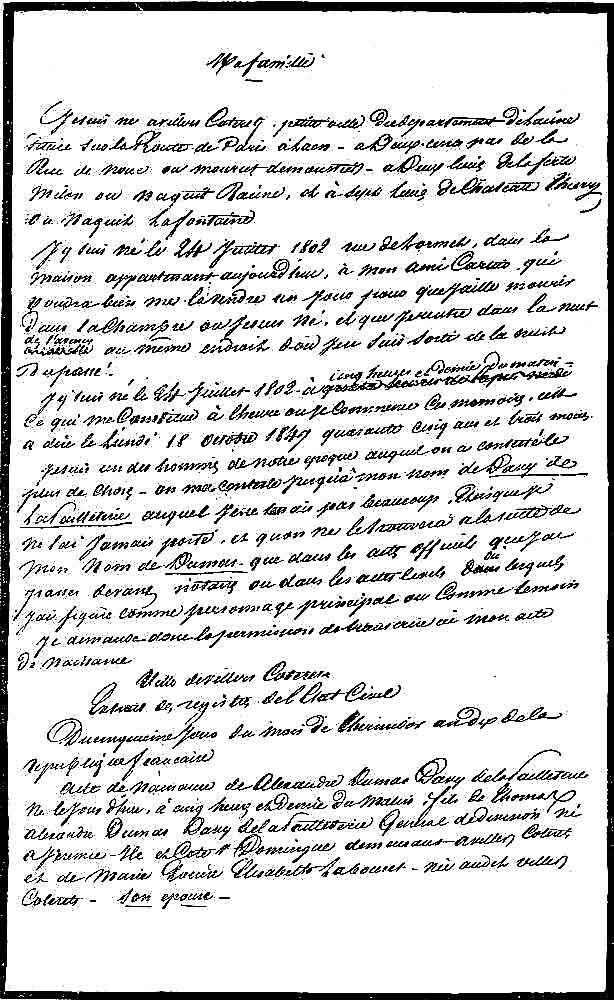 Ma famille
Je suis né a villers Coterets petite ville du departement de laisne
située sur la Route de Paris a Laon - a Deux cens pas de la
Rue de noue ou mourut demoustier - a Deux lieues de la ferte
Milon ou naquit Racine, et à sept lieues de Chateau thierry
ou naquit Lafontaine
J'y suis né le 24 Juillet 1802 rue de Lormet, dans la
maison appartenant aujourd'hui, à mon ami Carier qui
voudra bien me la vendre un jour pour que j'aille mourir
Dans la Chambre ou je suis né, et que je rentre dans la nuit
de l'avenir
au même endroit d'où je suis sorti de la nuit
du passé.
J'y suis né le 24 Juillet 1802 - à cinq heures et demie du matin -
ce qui me constitue à l'heure ou je commence ces memoires, cest
a dire le Lundi 18 octobre 1847 quarante cinq ans et trois mois.
Je suis un des hommes de notre epoque auquel on a contesté le
plus de choses - on ma contesté jusqu'à mon nom de Davy de
La Pailleterie auquel je ne tenais pas beaucoup, Puisque je
ne l'ai jamais porté, et qu'on ne le trouvera a la suite de
mon nom de Dumas - que dans les actes officiels que j'ai
passés devant notaires ou dans les actes civils ou dans lesquels
j'ai figuré comme personnage principal ou comme temoin
Je demande donc la permission de transcrire ici mon acte
de naissance
Ville de villers Coterets
Extrait des registres de l'Etat Civil
Du cinquieme jour du mois de thermidor an dix de la
republique francaise
acte de naissance de Alexandre Dumas Davy de la Pailleterie
né le jour d'hui, à cinq heures et demie du matin, fils de Thomas
Alexandre Dumas Davy de la Pailleterie General de division né
a Jeremie Ile et Cote St Domingue demeurant a villers Coterets
et de Marie Louise Elisabeth Labouret - née audit villers
Coterets - son epouse -